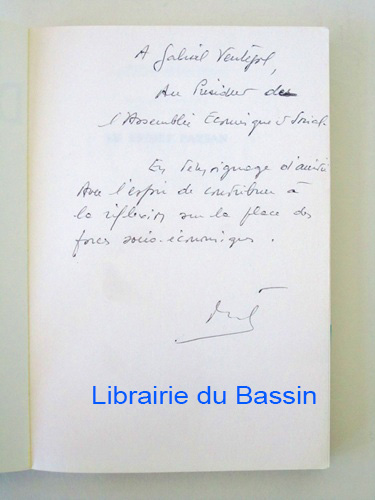 A Gabriel Ventejol,
Au Président de
l'Assemblée Economique & Social.
En témoignage d'amitié
Avec l'espoir de contribuer à
la réflexion sur la place des
forces socio-économiques.
Librairie du Bassin